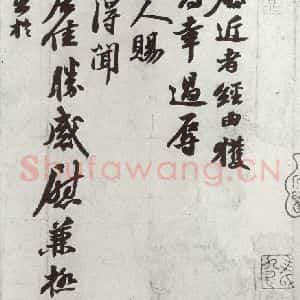 近者經由獲
幸過辱
人賜
得聞
居佳勝感慰兼極
於
Shufawang.CN